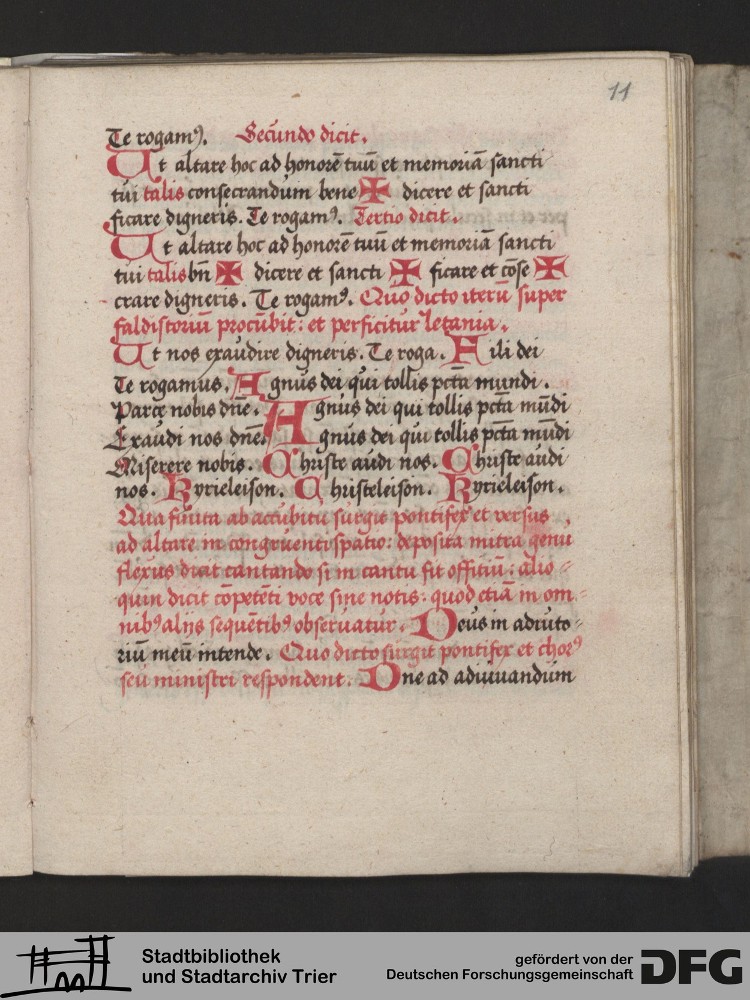 11
Te rogamꝰ. Secundo dicit.
Ut altare hoc ad honorē tuū et memoriā sancti
tui talis consecrandum bene ✠ dicere et sancti
ficare digneris. Te rogamꝰ. Tertio dicit.
Ut altare hoc ad honorē tuū et memoriā sancti
tui talis bn̄ ✠ dicere et sancti ✠ ficare et cōse ✠
crare digneris. Te rogamꝰ. Quo dicto iterū super
faldistoriū procūbit: et perficitur letania.
Ut nos exaudire digneris. Te roga. Fili dei
Te rogamus. Agnus dei qui tollis pctā mundi.
Parcę nobis dn̄e. Agnus dei qui tollis pctā mūdi
Exaudi nos dn̄e. Agnus dei qui tollis pctā mūdi
Miserere nobis. Christe audi nos. Christe audi
nos. Kyrieleison. Christeleison. Kyrieleison.
Qua finita ab accubitu surgit pontifex et versus
ad altare in congruenti spatio: deposita mitra genu
flexus dicit cantando si in cantu fit officiū: alio⸗
quin dicit cōpetēti voce sine notis: quod etiā in om⸗
nibꝰ alijs sequētibꝰ obseruatur. Deus in adiuto⸗
riū meū intende. Quo dicto surgit pontifex et chorꝰ
seu ministri respondent. Dn̄e ad adiuuandum
Stadtbibliothek
und Stadtarchiv Trier
gefördert von der
Deutschen Forschungsgemeinschaft
DFG